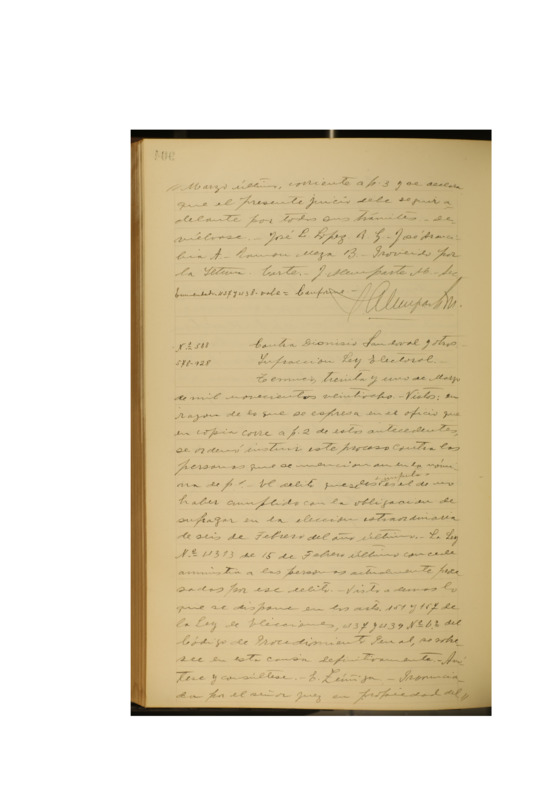 Marzo último, corriente a f. 3 que declara
que el presente juicio debe seguir a
delante por todos sus trámites. - De
vuélvase. - José L. López R G. - José Aranci-
bia A. - Ramon Meza B. - Proveido por
la Iltma. Corte. - J. Alemparte M. - Sec
437 y 438 - vale = Conforme -
N.º 588 Contra Dionisio Sandoval y otros
578-928 Infraccion Ley Electoral. -
Temuco, treinta y uno de Marzo
de mil novecientos veintiocho. - Vistos: en
razon de lo que se espresa en el oficio que
en copia corre a f. 2 de estos antecedentes,
se ordenó instruir este proceso contra las
personas que se mencionan en la nómi-
na de f 1. - El delito que se les imputa es el de no
haber cumplido con la obligacion de
sufragar en la eleccion estraordinaria
de seis de Febrero del año último. - La Ley
N.º 4313 de 15 de Febrero último concede
amnistia a las personas actualmente proce-
sadas por ese delito. - Visto ademas lo
que se dispone en los arts. 159 y 167 de
la Ley de Elecciones, 437 y 439 N.º 6.º del
Código de Procedimiento Penal, se sobre-
see en esta causa definitivamente. - Anó-
tese y consúltese. - E. Zúñiga - Pronuncia-
da por el señor juez en propiedad del